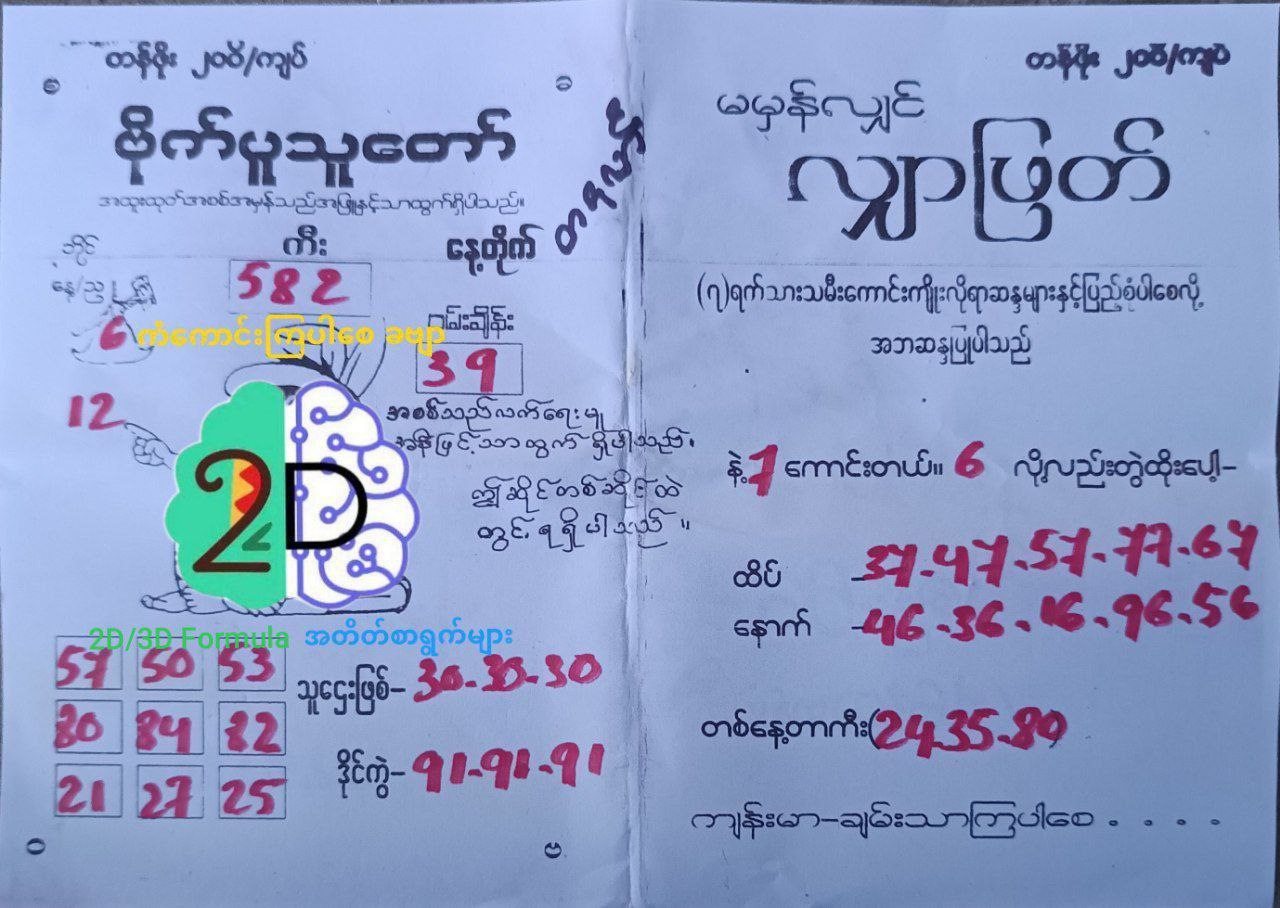 တန်ဖိုး ၂၀၀ိ/ကျပ်
ဗိုက်ပူသူတော်
အထူးထုတ်အစစ်အမှန်သည်အဖြူနှင့်သာထွက်ရှိပါသည်။
ကီး
နေ့တိုက်
582
6
ကံကောင်းကြပါစေ ခဗျာ
39
12
အစစ်သည်လက်ရေးမူ
ဤဆိုင်တစ်ဆိုင်ထဲ
တွင် ရရှိပါသည်။
2D
2D/3D Formula အတိတ်စာရွက်များ
57 50 53
80 84 82
21 27 25
သူဌေးဖြစ်– 30.30.30
ဒိုင်ကွဲ– 91.91.91
တန်ဖိုး ၂၀၀ိ/ကျပ်
မမှန်လျှင်
လျှာဖြတ်
(၇)ရက်သားသမီးကောင်းကျိုးလိုရာဆန္ဒများနှင့်ပြည့်စုံပါစေလို့
အဘဆန္ဒပြုပါသည်
နဲ့ 7 ကောင်းတယ်။ 6 လို့လည်းတွဲထိုးပေါ့–
ထိပ် –37.47.57.77.67
နောက် –46.36.16.96.56
တစ်နေ့တာကီး(24.35.80)
ကျန်းမာ–ချမ်းသာကြပါစေ . . . .